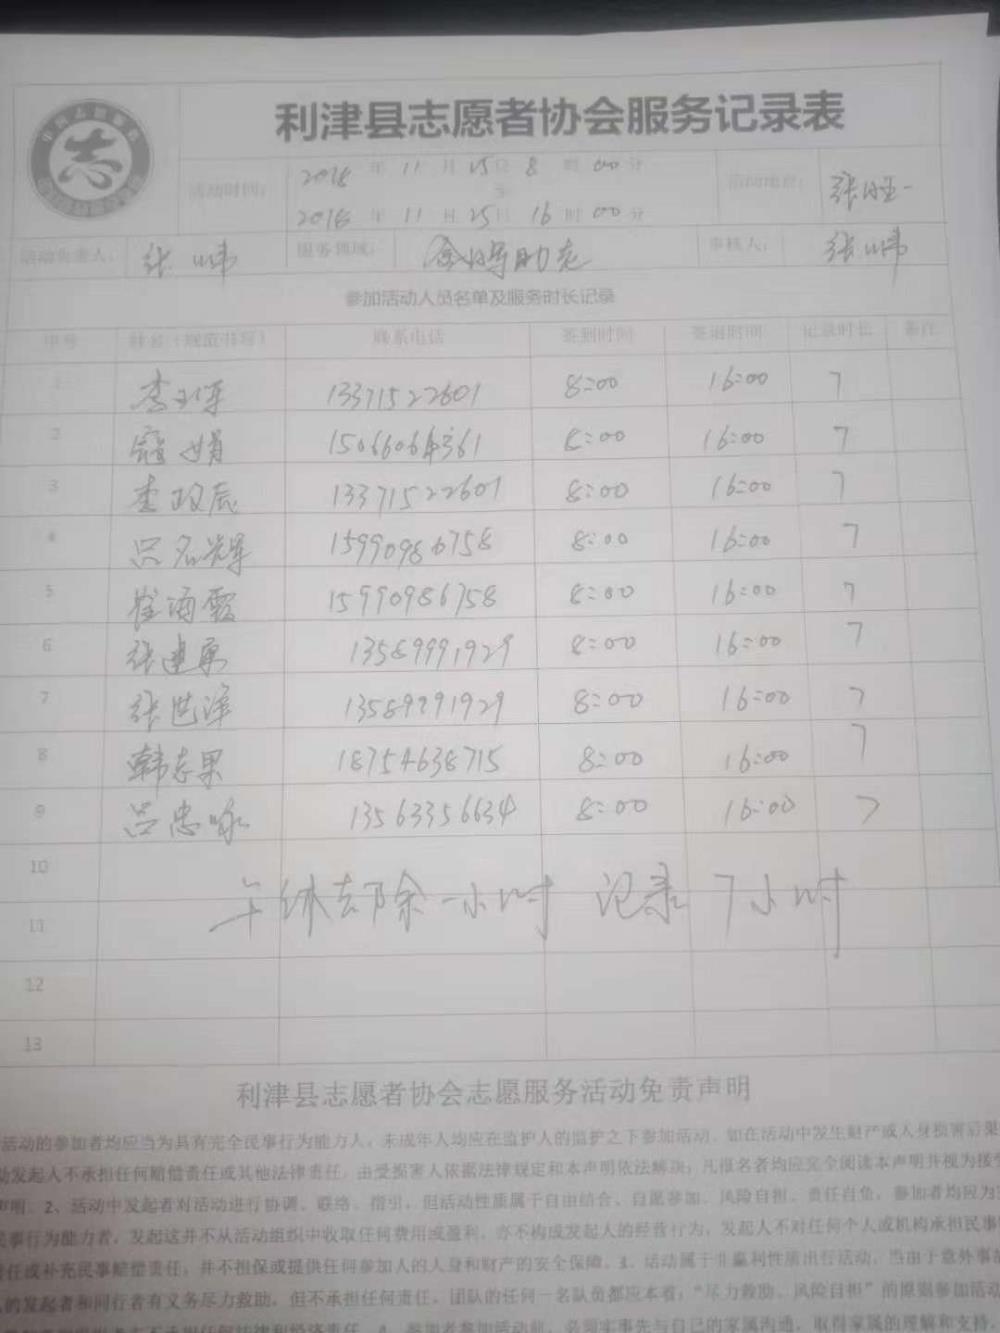 利津县志愿者协会服务记录表
活动时间: 2018 年 11 月 25日 8 时 00 分
至
2018 年 11 月 25日 16 时 00 分
活动地点: 张旺一
活动负责人: 张 服务领域: 助 审核人: 张
参加活动人员名单及服务时长记录
序号 姓名(规范书写) 联系电话 签到时间 签退时间 记录时长 备注
1 李 13371522601 8:00 16:00 7
2 寇娟 15066064361 8:00 16:00 7
3 李政辰 13371522601 8:00 16:00 7
4 吕名辉 15990986758 8:00 16:00 7
5 崔海霞 15990986758 8:00 16:00 7
6 张建勇 13589991929 8:00 16:00 7
7 张世泽 13589991929 8:00 16:00 7
8 韩志果 18754638715 8:00 16:00 7
9 吕忠咏 13563356634 8:00 16:00 7
10
午休去除一小时 记录7小时
11
12
13
利津县志愿者协会志愿服务活动免责声明
活动的参加者均应当为具有完全民事行为能力人,未成年人均应在监护人的监护之下参加活动,如在活动中发生财产或人身损害后果
动发起人不承担任何赔偿责任或其他法律责任,由受损害人依据法律规定和本声明依法解决;凡报名者均应完全阅读本声明并视为接
声明。2、活动中发起者对活动进行协调、联络、指引,但活动性质属于自由结合、自愿参加、风险自担、责任自负,参加者均应为
民事行为能力者,发起这并不从活动组织中收取任何费用或盈利,亦不构成发起人的经营行为,发起人不对任何个人或机构承担民事
责任或补充民事赔偿责任,并不担保或提供任何参加人的人身和财产的安全保障。3、活动属于非赢利性质出行活动,当由于意外事
的发起者和同行者有义务尽力救助,但不承担任何责任,团队的任何一名队员都应本着:“尽力救助、风险自担”的原则参加活动
不承担任何法律和经济责任。4、参加者参加活动前,必须实事先与自己的家属沟通,取得家属的理解和支持,